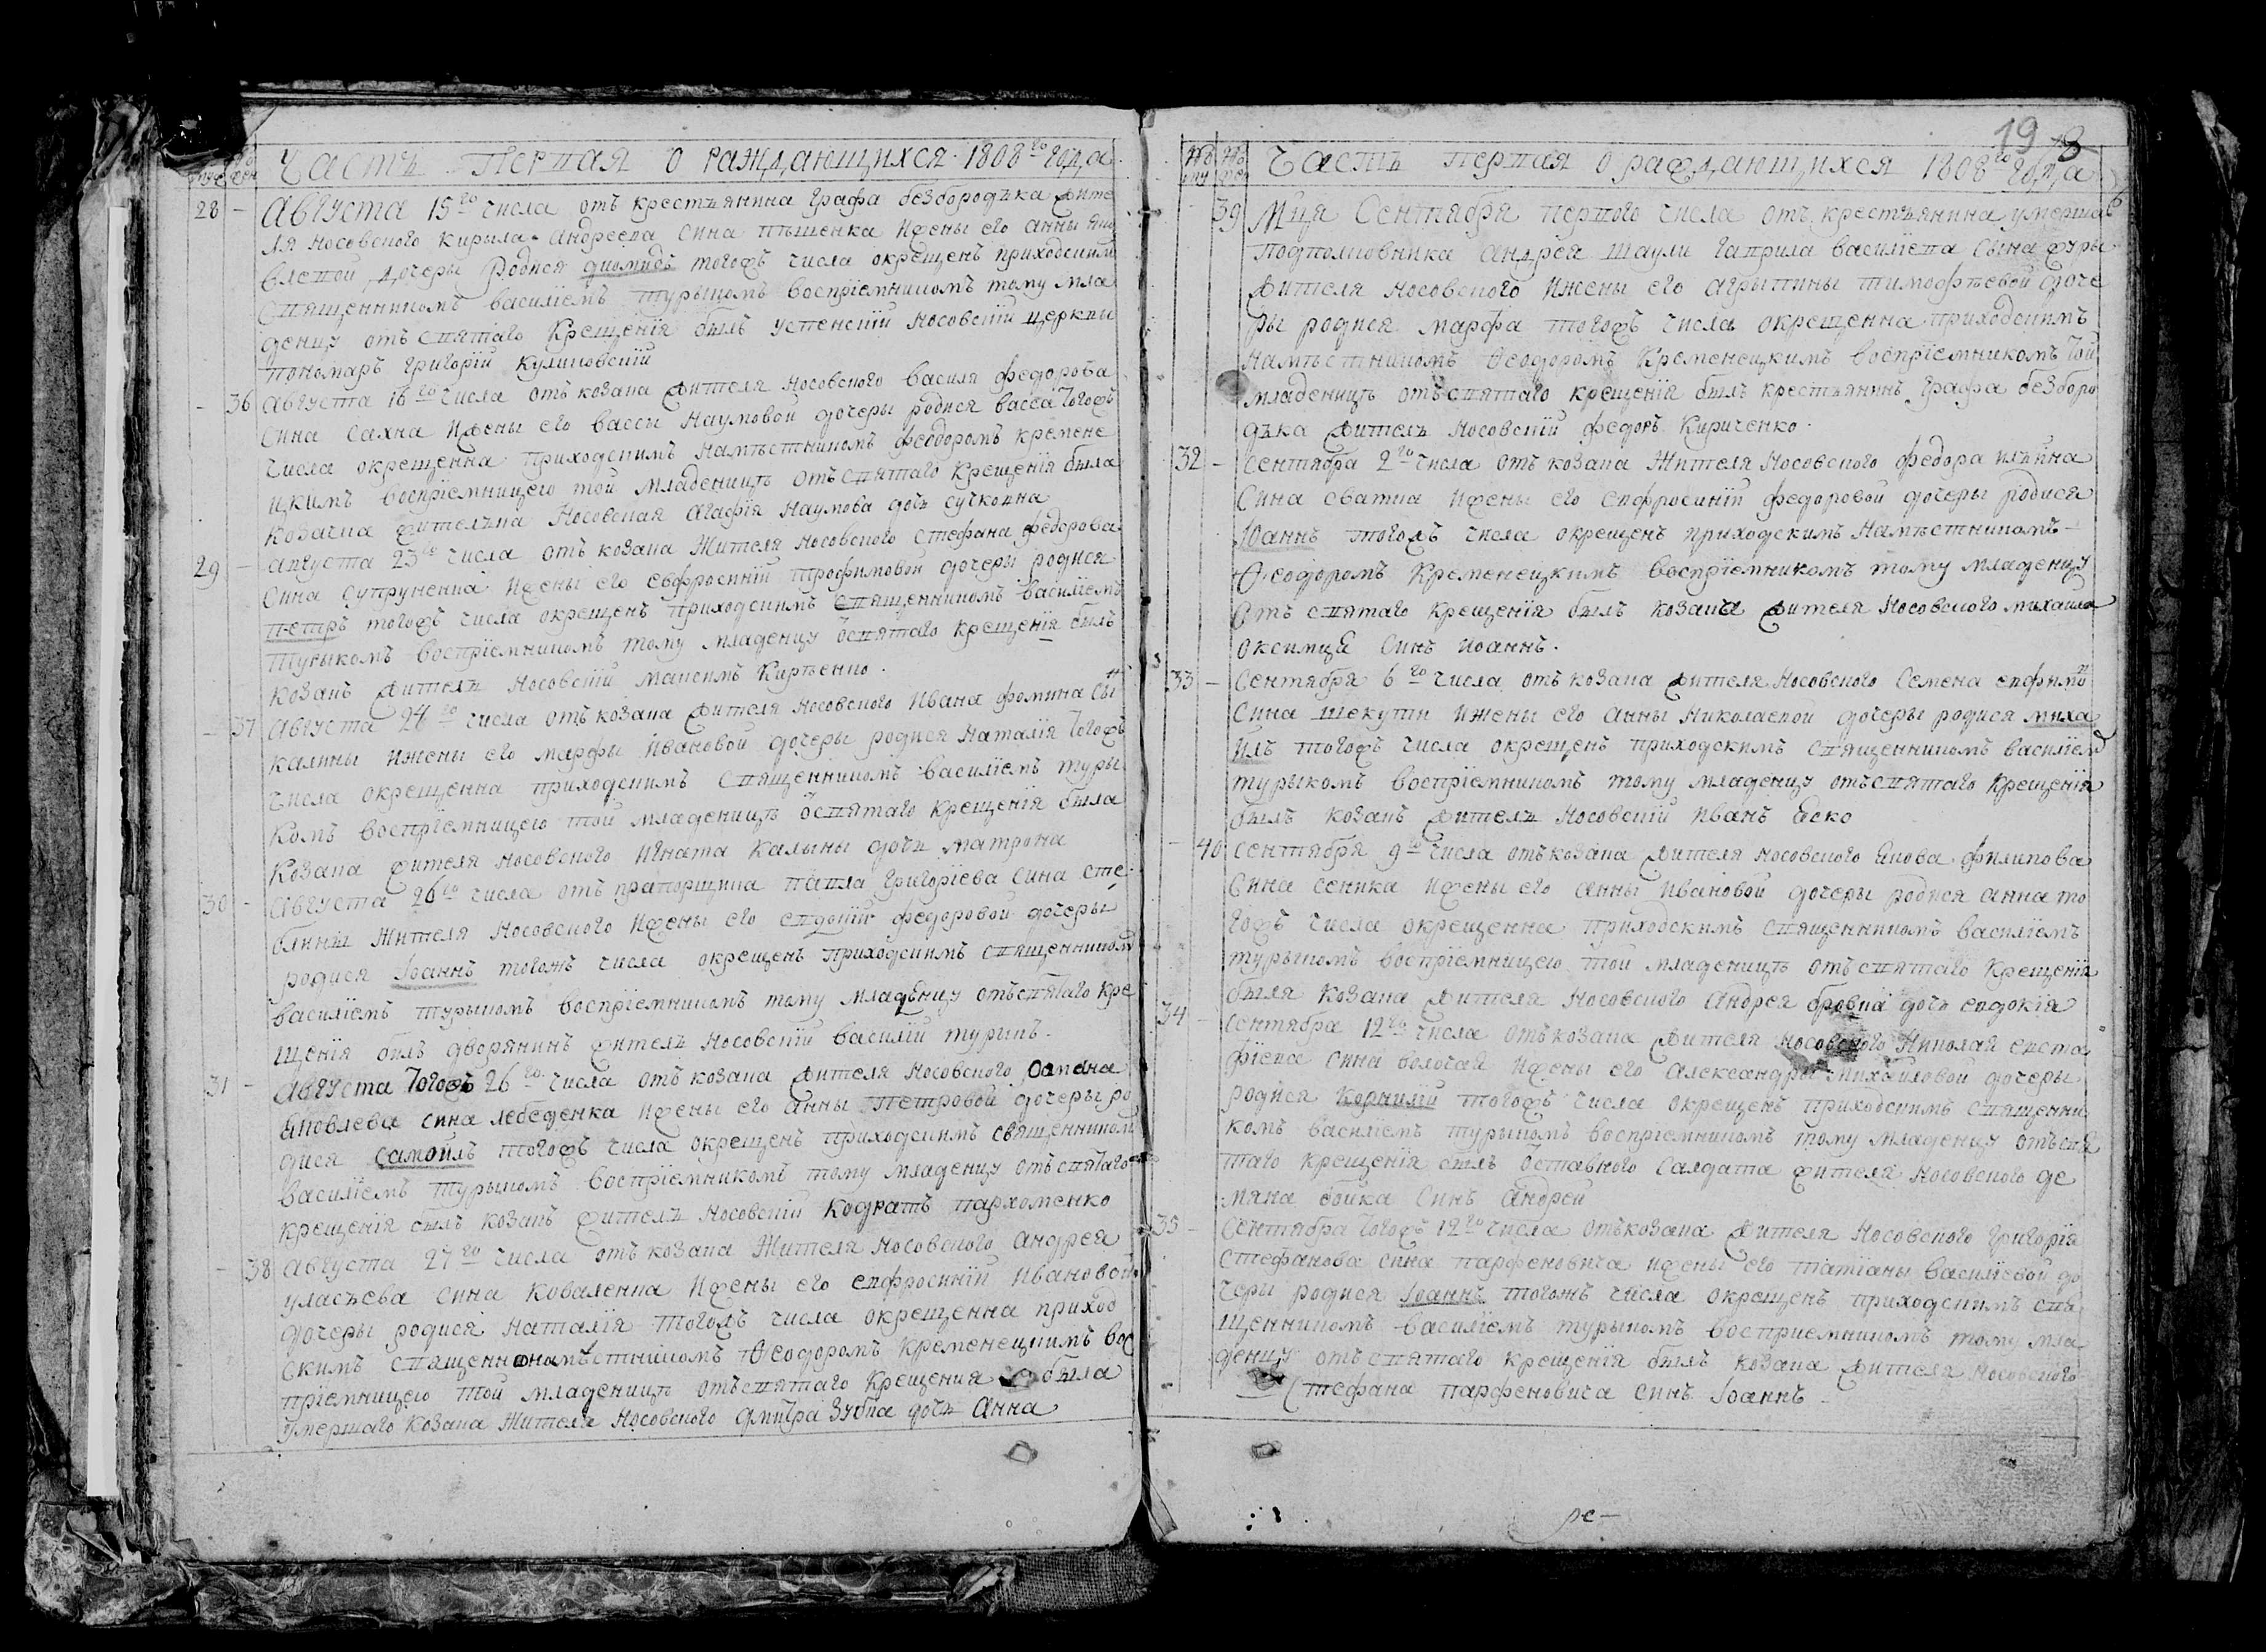 Часть Первая о раждающихся 1808го года
28 – Августа 15го числа отъ крестьянина Графа безбородька жите
ля носовского кирила Андреева сина пѣшенка ижены его анны
влевой дочеры родися диомидъ тогожъ числа окрещенъ приходскимъ
священникомъ василіемъ турыкомъ воспріемникомъ тому мла
денцу отъ святаго крещенія былъ успенскій носовскій церкви
пономаръ григорій куликовскій
– 36 Августа 16го числа отъ козака жителя носовского василя федорова
сина сахна ижены его васси наумовой дочеры родися васса тогожъ
числа окрещенна приходскимъ намѣстникомъ феодоромъ кремене
цкимъ воспріемницею той младеницѣ отъ святаго крещенія была
козачка жителька носовская агафія наумова дочь сучковна
29 – августа 23го числа отъ козака жителя носовского стефана федорова
сина супруненка ижены его евфросиніи трофимовой дочеры родися
петръ тогожъ числа окрещенъ приходскимъ священникомъ василіемъ
турыкомъ воспріемникомъ тому младенцу ѿ святаго крещенія былъ
козакъ жителъ носовскій максимъ Кирѣенко.
– 37 Августа 24го числа отъ козака жителя носовского Ивана фомина сы
калины ижены его марфы Ивановой дочеры родися Наталія тогожъ
числа окрещенна приходскимъ священникомъ василіемъ туры
комъ воспріемницею той младеницѣ ѿ святаго крещенія была
козака жителя носовского Игната Калыны дочъ матрона
30 – Августа 26го числа отъ прапорщика павла григоріева сина сте
блини жителя носовского ижены его евдокіи федоровой дочеры
родися Іоаннъ тогожъ числа окрещенъ приходскимъ священникомъ
василіемъ турыкомъ воспріемникомъ тому младенцу отъ святаго кре
щенія билъ дворянинъ жителъ носовскій василій турыкъ.
31 – Августа тогожъ 26го числа отъ козака жителя носовского
яковлева сина лебеденка ижены его анны петровой дочеры ро
дися самойлъ тогожъ числа окрещенъ приходскимъ священникомъ
василіемъ турыкомъ воспріемникомъ тому младенцу отъ святаго
крещенія былъ козакъ жителъ носовскій кодратъ пархоменко
– 38 Августа 27го числа отъ козака жителя носовского андрея
уласъева сина коваленка ижены его евфросиніи Ивановой
дочеры родися наталія тогожъ числа окрещенна приход
скимъ намѣстникомъ Ѳеодоромъ Кременецкимъ вос
пріемницею той младеницѣ отъ святаго крещения была
умершаго козака жителя носовского дмитра зубка дочъ Анна
19
Часть первая о раждающихся 1808го года
39 Мця Сентября первого числа отъ крестьянина умершаго
подполковника андрея шаули гаврила василіева сына
жителя носовского ижены его агрыпины тимофѣевой доче
ры родися марфа тогожъ числа окрещенна приходскимъ
намѣстникомъ Ѳеодоромъ Кременецкимъ воспріемникомъ той
младеницѣ отъ святаго крещенія былъ крестьянинъ графа безборо
дька жителъ носовскій федоръ Кириченко.
32 – Сентября 2го числа отъ козака жителя носовского федора ильина
сина сватка ижены его евфросиніи федоровой дочеры родися
Іоаннъ тогожъ числа окрещенъ приходскимъ намѣстникомъ
Ѳеодоромъ Кременецкимъ воспріемникомъ тому младенцу
отъ святаго крещенія былъ козака жителя носовского михаила
синъ иоаннъ.
33 – Сентября 6го числа отъ козака жителя носовского Семена
сина шекути ижены его анны николаевой дочеры родися миха
илъ тогожъ числа окрещенъ приходскимъ священникомъ василіемъ
турыкомъ воспріемникомъ тому младенцу отъ святаго крещенія
былъ козакъ жителъ носовскій иванъ
– 40 Сентября 9го числа отъ козака жителя носовского якова филипова
сина сеника ижены его анны ивановой дочеры родися анна то
гожъ числа окрещенна приходскимъ священникомъ василіемъ
турыкомъ воспріемницею той младеницѣ отъ святаго крещенія
была козака жителя носовского андрея дочъ евдокія
34 – Сентября 12го числа отъ козака жителя носовского николая евста
фіева сина ижены его александры михайловой дочеры
родися Корнилій тогожъ числа окрещенъ приходскимъ священни
комъ василіемъ турыкомъ воспріемникомъ тому младенцу отъ свя
таго крещенія былъ ѿставного салдата жителя носовского де
мяна бойка синъ андрей
35 – Сентября тогожъ 12го числа отъ козака жителя носовского григорія
стефанова сина парфеновича ижены его татіаны василіевой до
чери родися Іоаннъ тогожъ числа окрещенъ приходскимъ свя
щенникомъ василіемъ турыкомъ восприемникомъ тому мла
денцу отъ святаго крещенія былъ козака жителя носовского
Стефана парфеновича синъ Іоаннъ